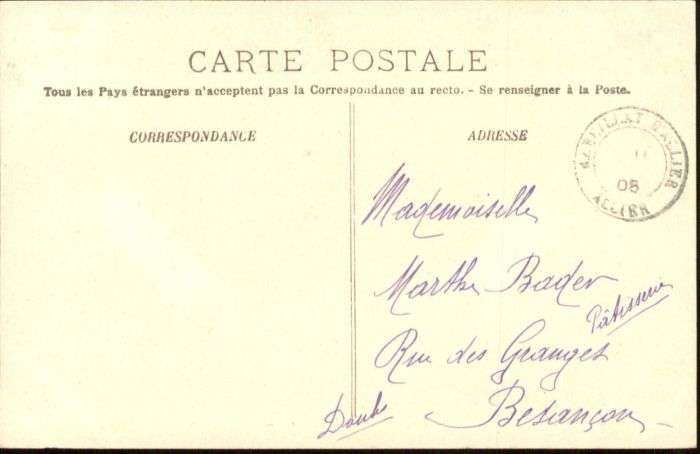 CARTE POSTALE
Tous les Pays étrangers n'acceptent pas la Correspondance au recto. - Se renseigner à la Poste.
CORRESPONDANCE
ADRESSE
D'ALLIER
05
ALLIER
Mademoiselle
Marthe Bader
Pâtisserie
Rue des Granges
Besançon
Doubs